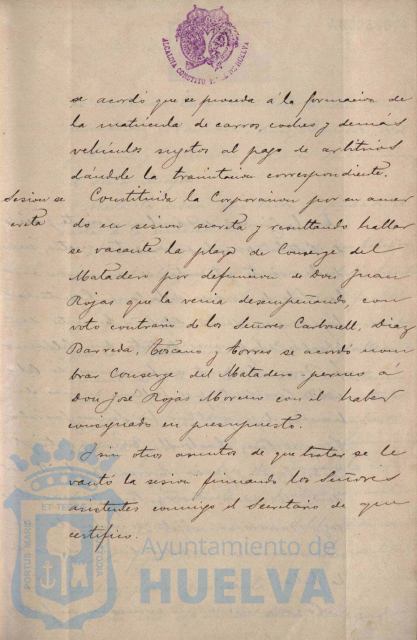 ALCALDIA CONSTITUCIONAL DE HUELVA
se acordó que se proceda á la formacion de
la matricula de carros, coches y demás
vehiculos sugetos al pago de arbitrios
dándole la tramitacion correspondiente.
Sesion se
creta
Constituida la Corporacion por su acuer
do en sesion secreta y resultando hallar
se vacante la plaza de Conserge del
Matadero por defuncion de Don Juan
Rojas que la venia desempeñando, con
voto contrario de los Señores Carbonell, Diaz
Barreda, Toscano y Torres se acordó nom
brar Conserge del Matadero á
Don José Rojas Moreno con el haber
consignado en presupuesto.
I sin otros asuntos de que tratar se le
vantó la sesion firmando los Señores
asistentes conmigo el Secretario de que
certifico.
PORTUS MARIS ET TERRAE CUSTODIA
Ayuntamiento de
HUELVA